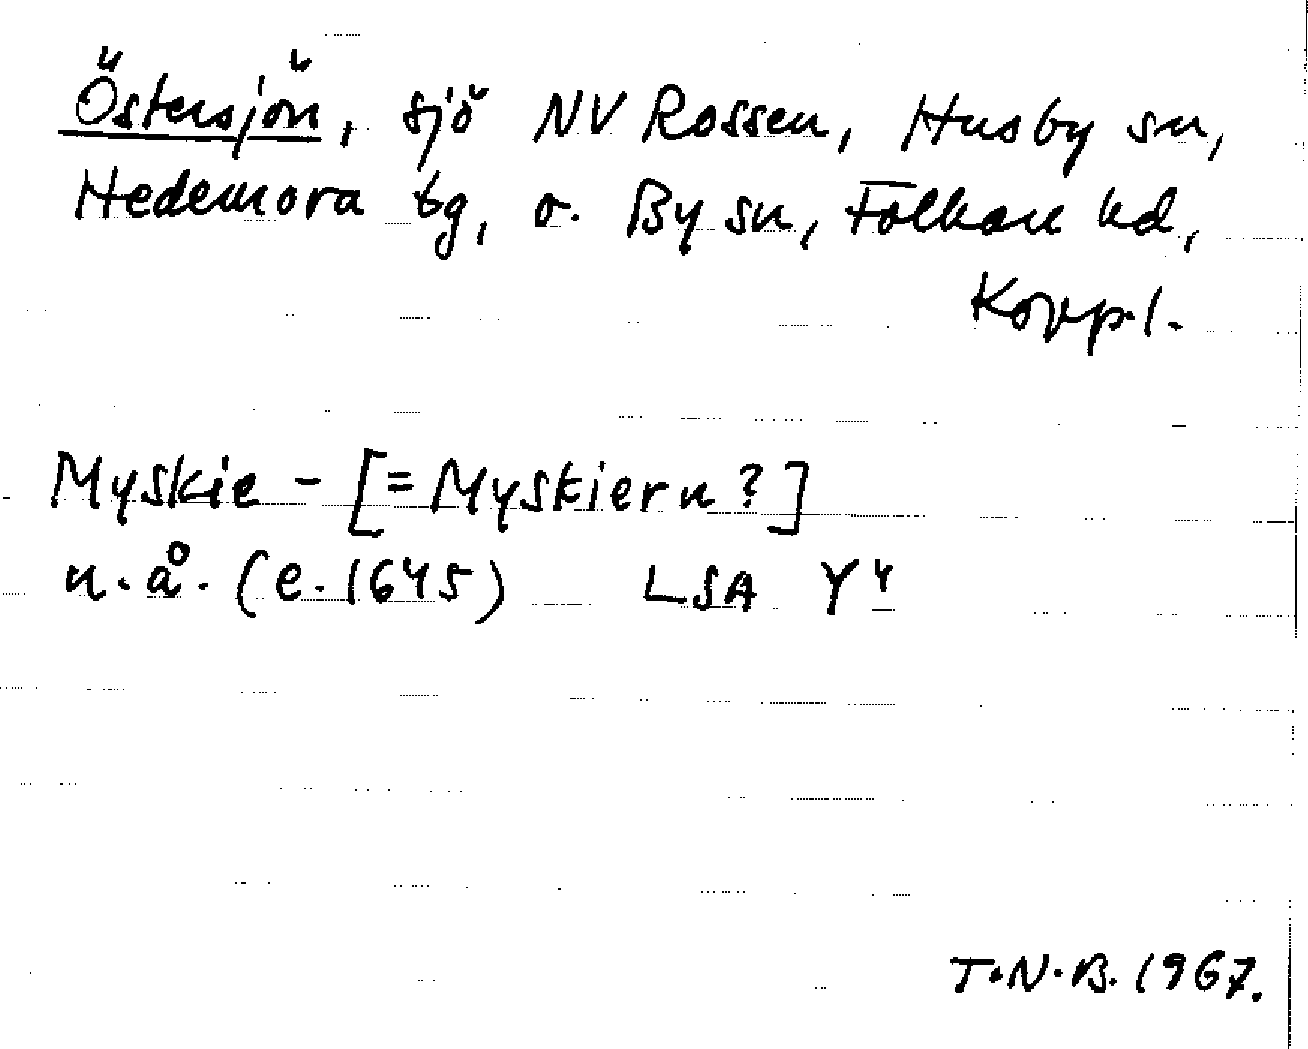 Östersjön, sjö NV Rossen, Husby sn,
Hedemora tg, o. By sn, Folkare hd,
Kopp.l.
Myskie - [= Myskiern?]
n.å. (e. 1645) LSA Y4
T.N.B. 1967.